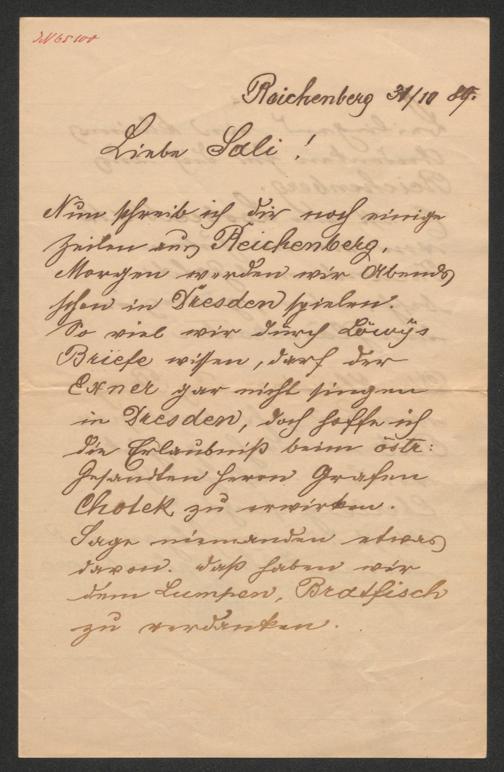 IN 65100
Reichenberg 31/10 89.
Liebe Sali!
Nun schreib ich dir noch einige
Zeilen aus Reichenberg,
Morgen werden wir Abends
schon in Dresden spielen.
So viel wir durch Löwy's
Briefe wissen, darf der
Exner gar nicht singen
in Dresden, doch hoffe ich
die Erlaubniß beim östr:
Gesandten Herrn Grafen
Chotek zu erwirken.
Sage niemanden etwas
davon. daß haben wir
dem Lumpen, Bratfisch
zu verdanken.